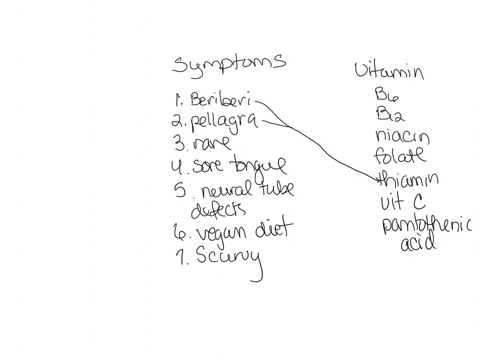 Symptoms
1. Beriberi
2. pellagra
3. rare
4. sore tongue
5. neural tube
defects
6. vegan diet
7. Scurvy
Vitamin
B6
B12
niacin
folate
thiamin
vit C
pantothenic
acid